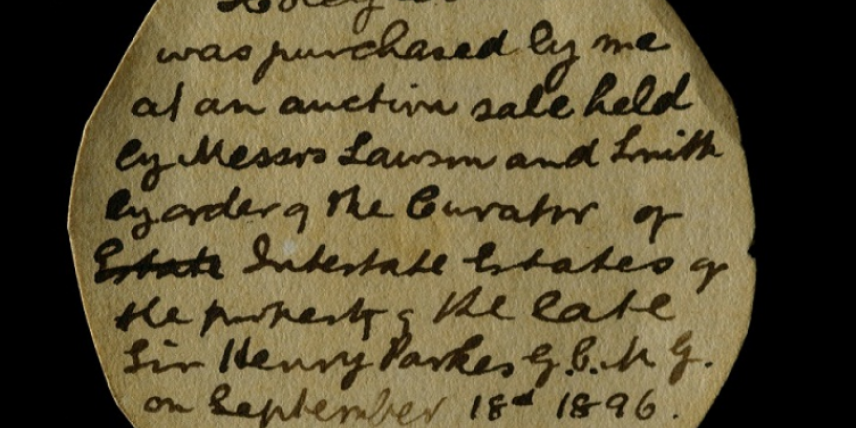 was purchased by me
at an auction sale held
by Messrs Lawson and Smith
by order of the Curator of
Estate Intestate Estates of
the property of the late
Sir Henry Parkes G.C.M.G.
on September 18th 1896.